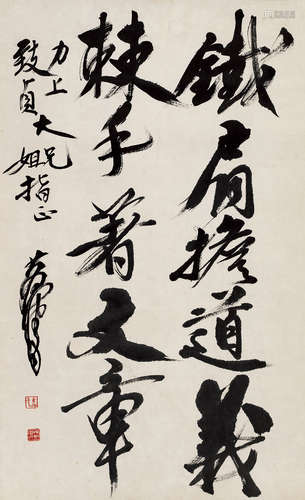 鐵肩擔道義
棘手著文章
力上兄
致貞大姐指正